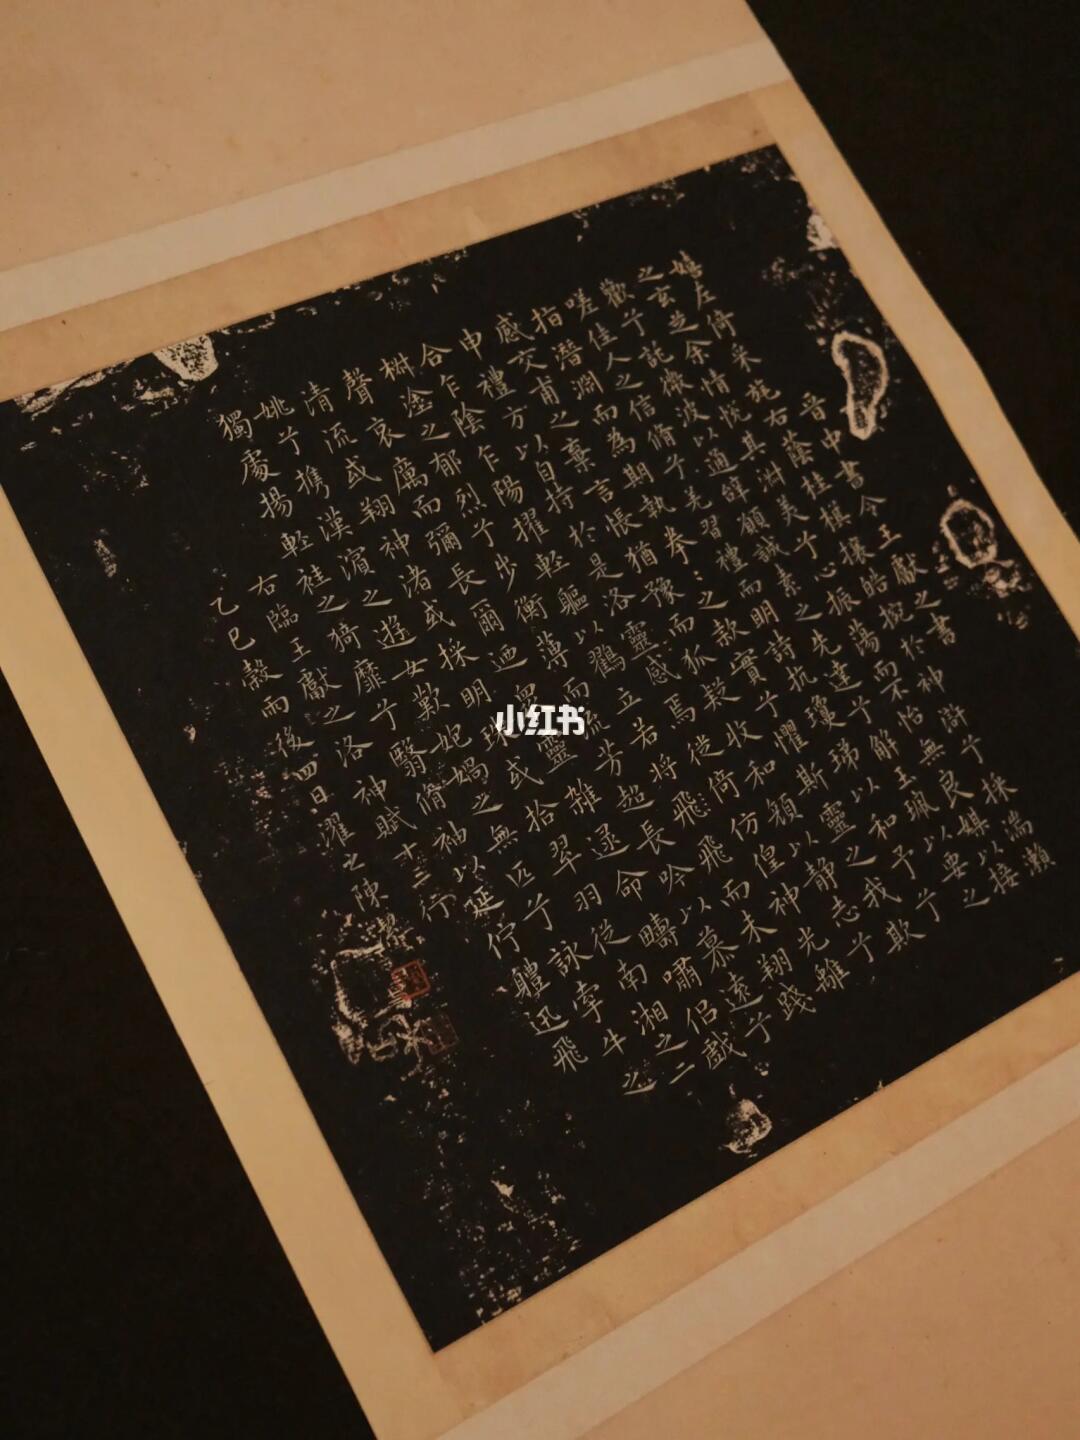 晉中書令王獻之書
嬉左倚采旄右蔭桂旗攘皓捥於神滸兮採湍瀨
之玄芝余情悅其淑美兮心振蕩而不怡無良媒以接
歡兮託微波以通辭願誠素之先達兮解玉珮以要之
嗟佳人之信脩兮羌習禮而明詩抗瓊珶以和予兮
指潛淵而為期執拳=之款實兮懼斯靈之我欺
感交甫之棄言悵猶豫而狐疑收和顏以靜志兮
申禮防以自持於是洛靈感焉徙倚仿偟神光離
合乍陰乍陽擢輕軀以鶴立若將飛而未翔踐
椒塗之郁烈兮步衡薄而流芳超長吟以慕遠兮
聲哀厲而彌長爾迺眾靈雜遝命疇嘯侶或戲
清流或翔神渚或採明珠或拾翠羽從南湘之二
姚兮攜漢濱之遊女歎妑媧之無匹兮詠牽牛之
獨處揚輕袿之猗靡兮翳脩袖以延佇體迅飛
右臨王獻之洛神賦十三行
乙巳穀雨後四日濯之陳
小红书